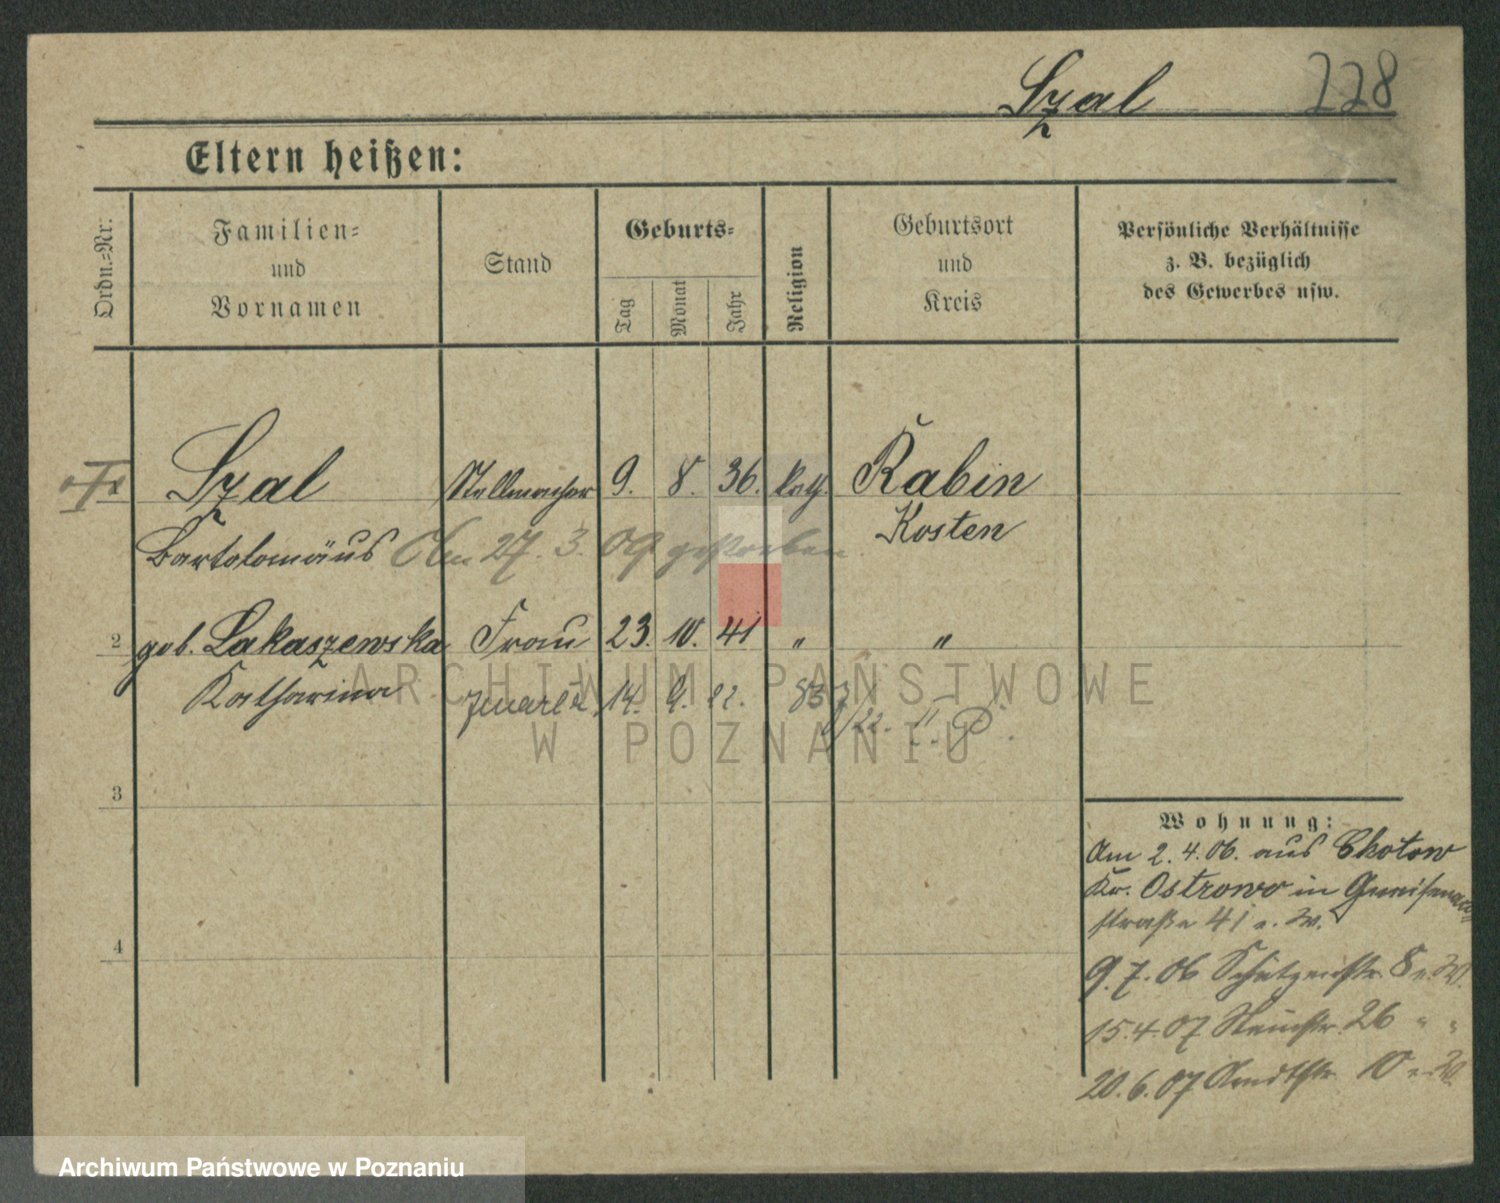 Szal 228
Eltern heißen:
Ordn.-Nr.
Familien-
und
Vornamen
Stand
Geburts-
Tag
Monat
Jahr
Religion
Geburtsort
und
Kreis
Persönliche Verhältnisse
z. B. bezüglich
des Gewerbes usw.
Szal Stellmacher 9. 8. 36. kath. Rabin
Kosten
Bartolomäus Am 27. 3. 09 gestorben
2 geb. Lakaszewska Frau 23. 10. 41 " "
Katharina 14. 9. 22.
ARCHIWUM PAŃSTWOWE
W POZNANIU
3
4
Wohnung:
Am 2. 4. 06. aus Chotow
Kr. Ostrowo in Gneisenau
straße 41 e. W.
9. 7. 06 Schützenstr. 8 e. W.
15. 4. 07 26 " "
20. 6. 07 Arndtstr. 10 e. W.
Archiwum Państwowe w Poznaniu